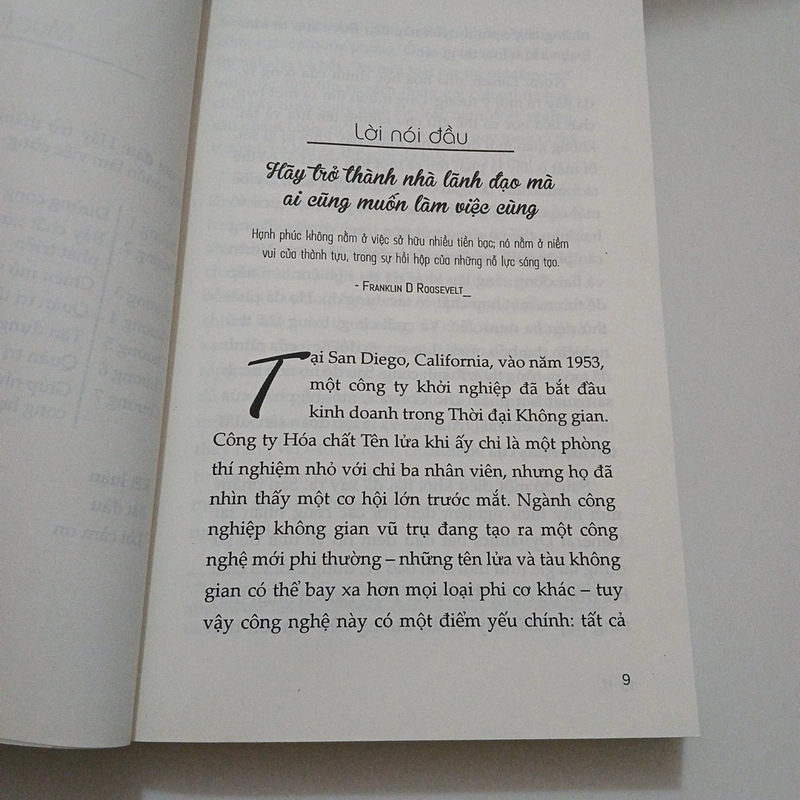 Lời nói đầu
Hãy trở thành nhà lãnh đạo mà
ai cũng muốn làm việc cùng
Hạnh phúc không nằm ở việc sở hữu nhiều tiền bạc; nó nằm ở niềm
vui của thành tựu, trong sự hồi hộp của những nỗ lực sáng tạo.
- FRANKLIN D ROOSEVELT_
Tại San Diego, California, vào năm 1953,
một công ty khởi nghiệp đã bắt đầu
kinh doanh trong Thời đại Không gian.
Công ty Hóa chất Tên lửa khi ấy chỉ là một phòng
thí nghiệm nhỏ với chỉ ba nhân viên, nhưng họ đã
nhìn thấy một cơ hội lớn trước mắt. Ngành công
nghiệp không gian vũ trụ đang tạo ra một công
nghệ mới phi thường – những tên lửa và tàu không
gian có thể bay xa hơn mọi loại phi cơ khác – tuy
vậy công nghệ này có một điểm yếu chính: tất cả
9